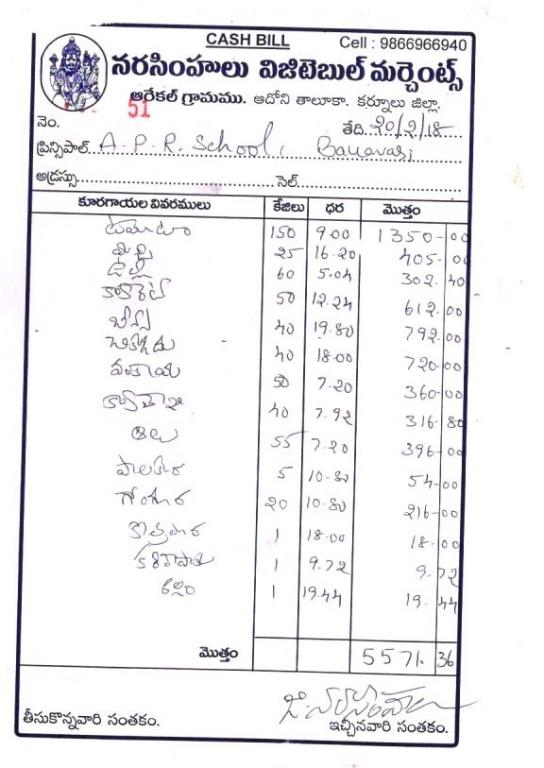 CASH BILL Cell : 9866966940
నరసింహులు విజిటెబుల్ మర్చెంట్స్
ఆరేకల్ గ్రామము. ఆదోని తాలూకా. కర్నూలు జిల్లా.
51
నెం. తేది. 20/2/18
ప్రిన్సిపాల్ A.P.R. School, Banavasi
అడ్రస్సు సెల్.
కూరగాయల వివరములు కేజిలు ధర మొత్తం
టమోటా 150 9.00 1350-00
మిర్చి 25 16.20 405.00
ఉల్లి 60 5.04 302.40
క్యారెట్ 50 12.24 612.00
బీన్స్ 40 19.80 792.00
చిక్కుడు 40 18.00 720.00
వంకాయ 50 7.20 360-00
40 7.92 316.80
ఆలు 55 7.20 396.00
పాలకూర 5 10.80 54.00
గోంగూర 20 10.80 216-00
కొత్తిమీర 1 18.00 18.00
కరివేపాకు 1 9.72 9.72
అల్లం 1 19.44 19.44
మొత్తం 5571.36
తీసుకొన్నవారి సంతకం. ఇచ్చినవారి సంతకం.